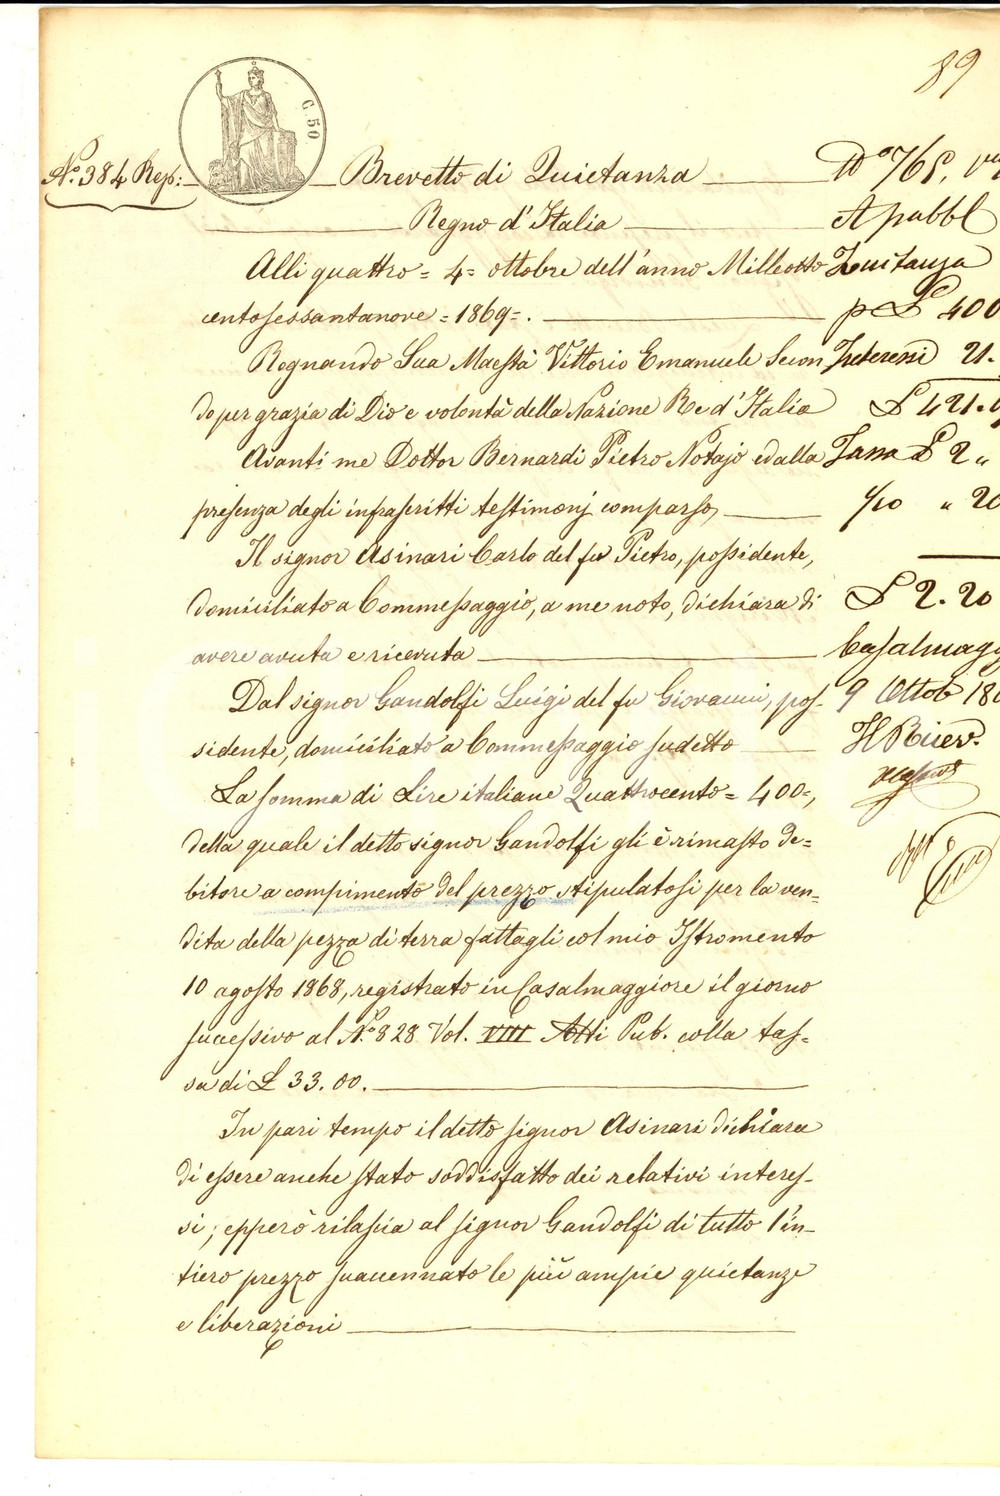 89
C. 50
N.º 384 Rep:
Brevetto di Quietanza
Regno d'Italia
Alli quattro = 4 = ottobre dell'anno Milleotto
centosessantanove = 1869 = .
Regnando Sua Maestà Vittorio Emanuele Secon
do per grazia di Dio e volontà della Nazione Re d'Italia
Avanti me Dottor Bernardi Pietro Notajo e dalla
presenza degli infrascritti testimonj comparso,
Il signor Asinari Carlo del fu Pietro, possidente,
domiciliato a Commessaggio, a me noto, dichiara di
avere avuta e ricevuta
Dal signor Gandolfi Luigi del fu Giovanni, pos-
sidente, domiciliato a Commessaggio sudetto
La somma di Lire italiane Quattrocento = 400 =,
della quale il detto signor Gandolfi gli è rimasto de=
bitore a compimento del prezzo stipulatosi per la ven=
dita della pezza di terra fattagli col mio Istromento
10 agosto 1868, registrato in Casalmaggiore il giorno
successivo al N.º 828 Vol. VIII Atti Pub. colla tas=
sa di £ 33. 00.
In pari tempo il detto signor Asinari dichiara
di essere anche stato soddisfatto dei relativi interes-
si; epperò rilascia al signor Gandolfi di tutto l'in-
tiero prezzo suaccennato le più ampie quietanze
e liberazioni
Nº 765,
A pubbl
Quitanza
p £ 400
Interessi 21.
£ 421.
Tassa £ 2 "
1/10 " 20
£ 2. 20
Casalmagg
9 Ottob 18
Il Ricev.